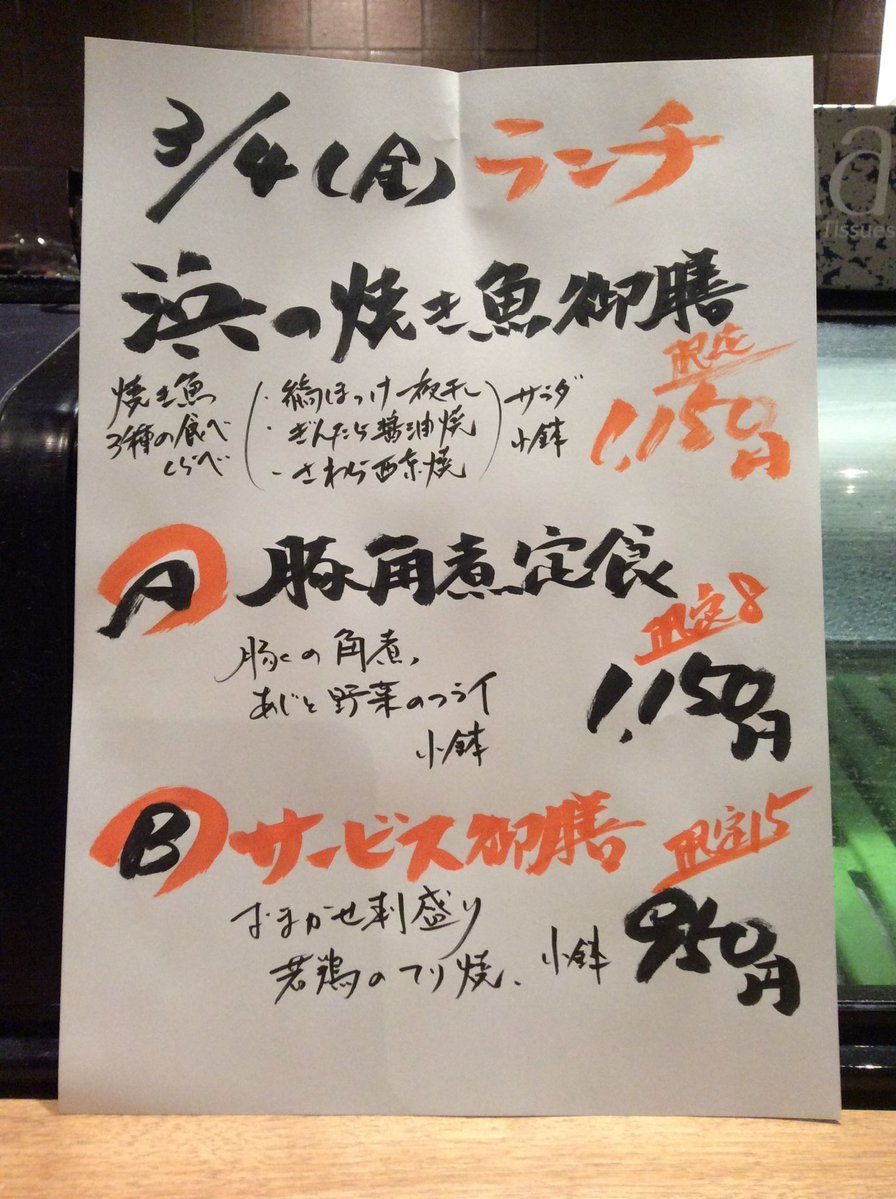 3/4(金) ランチ
浜の焼き魚御膳
限定
1,150円
焼き魚
3種の食べ
くらべ
・縞ほっけ一夜干し
・ぎんだら醤油焼
・さわら西京焼
サラダ
小鉢
A 豚角煮定食
限定8
1,150円
豚くの角煮、
あじと野菜のフライ
小鉢
B サービス御膳
限定15
950円
おまかせ刺盛り
若鶏のてり焼、小鉢
a
Tissues